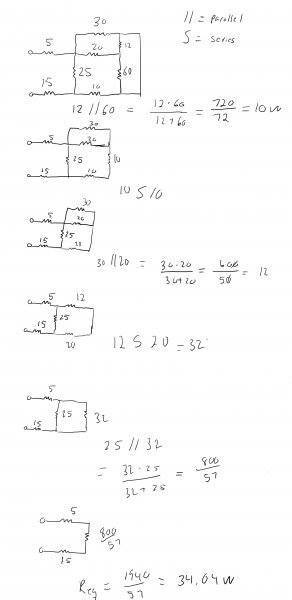 30
// = parallel
S = series
5
20
12
25
60
15
10
12 // 60 = 12·60 / 12+60 = 720 / 72 = 10 w
30
5
30
25
10
15
10
10 S 10
30
5
20
25
15
30 // 20 = 30·20 / 30+20 = 600 / 50 = 12
5
12
25
15
20
12 S 20 = 32
5
25
32
15
25 // 32
= 32·25 / 32+25 = 800 / 57
5
800 / 57
15
Req = 1940 / 57 = 34,04 w